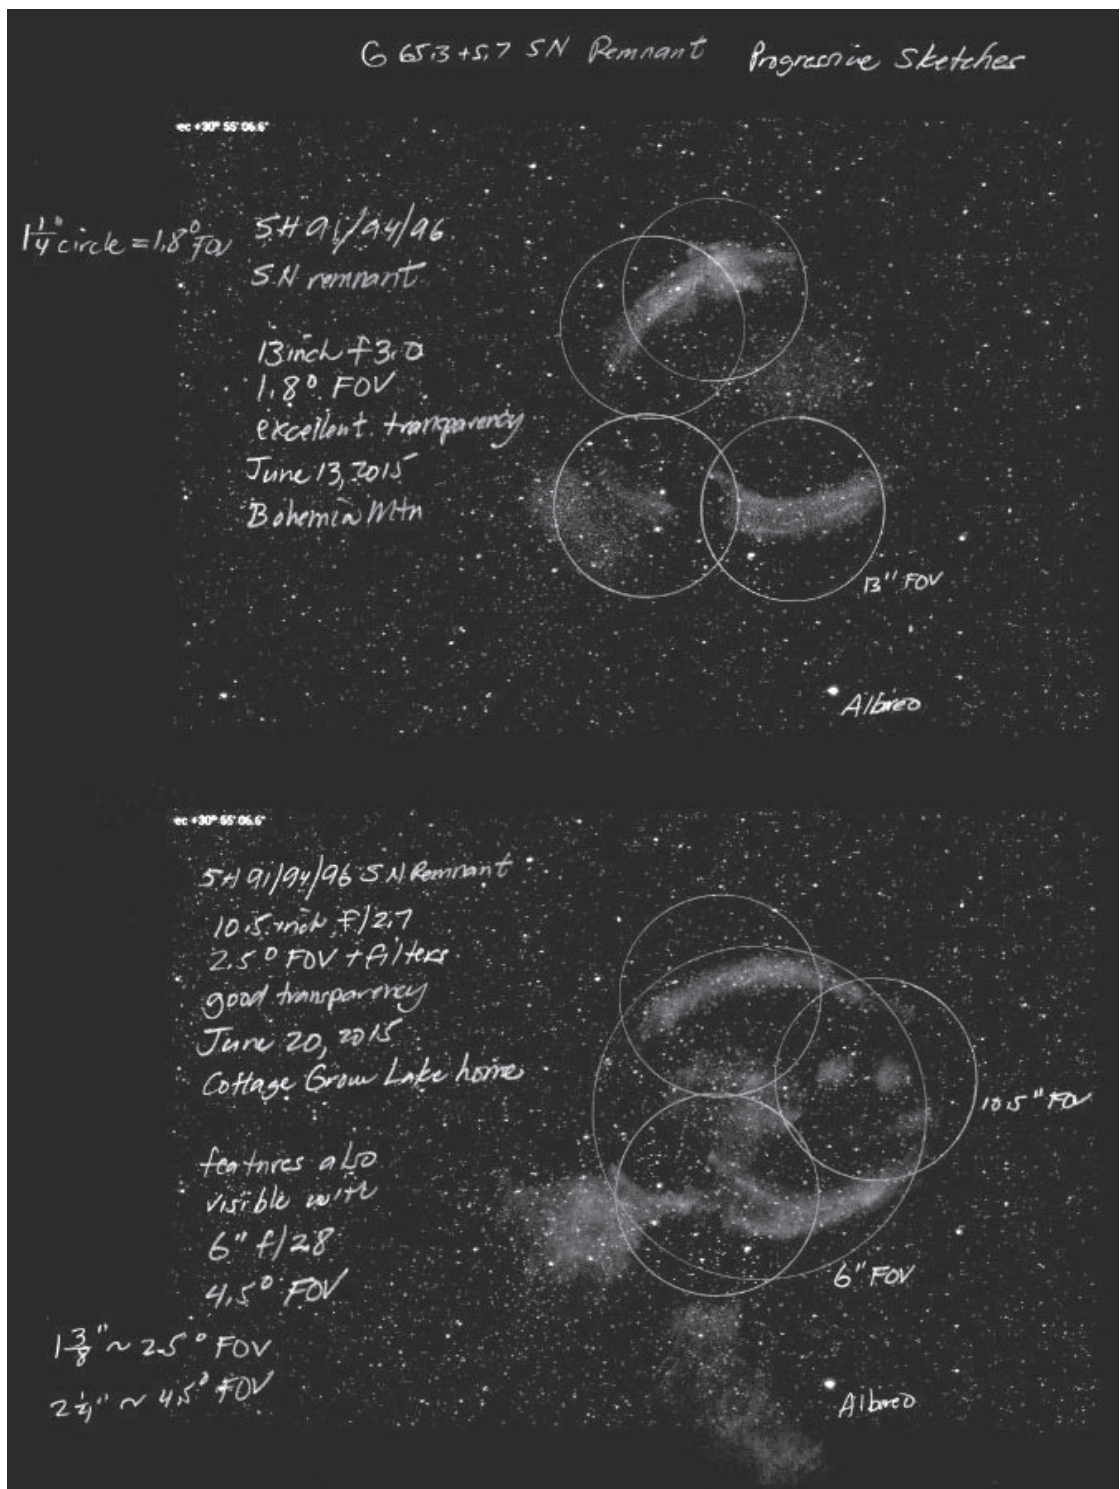 G 65.3+5.7 SN Remnant Progressive Sketches
ec +30° 55' 06.6"
1 1/4" circle = 1.8° FOV
SH 91/94/96
SN remnant
13 inch f3.0
1.8° FOV
excellent transparency
June 13, 2015
Bohemia Mtn
13" FOV
Albireo
ec +30° 55' 06.6"
SH 91/94/96 SN Remnant
10.5 inch f/2.7
2.5° FOV + filters
good transparency
June 20, 2015
Cottage Grove Lake home
10.5" FOV
features also
visible with
6" f/2.8
4.5° FOV
6" FOV
1 3/8" ~ 2.5° FOV
2 1/4" ~ 4.5° FOV
Albireo